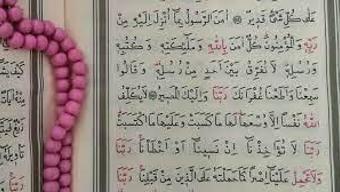 عَلَىٰ كُلِّ شَيْءٍ قَدِيرٌ ۝ اٰمَنَ الرَّسُولُ بِمَٓا اُنْزِلَ اِلَيْهِ مِنْ
رَبِّهٖ وَالْمُؤْمِنُونَ كُلٌّ اٰمَنَ بِاللّٰهِ وَمَلٰٓئِكَتِهٖ وَكُتُبِهٖ
وَرُسُلِهٖ لَا نُفَرِّقُ بَيْنَ اَحَدٍ مِنْ رُسُلِهٖ وَقَالُوا
سَمِعْنَا وَاَطَعْنَا غُفْرَانَكَ رَبَّنَا وَاِلَيْكَ الْمَصِيرُ ۝ لَا يُكَلِّفُ
اللّٰهُ نَفْسًا اِلَّا وُسْعَهَا لَهَا مَا كَسَبَتْ وَعَلَيْهَا مَا اكْتَسَبَتْ
رَبَّنَا لَا تُؤَاخِذْنَٓا اِنْ نَسِينَٓا اَوْ اَخْطَأْنَا رَبَّنَا
وَلَا تَحْمِلْ عَلَيْنَٓا اِصْرًا كَمَا حَمَلْتَهُ عَلَى الَّذِينَ مِنْ قَبْلِنَا رَبَّنَا